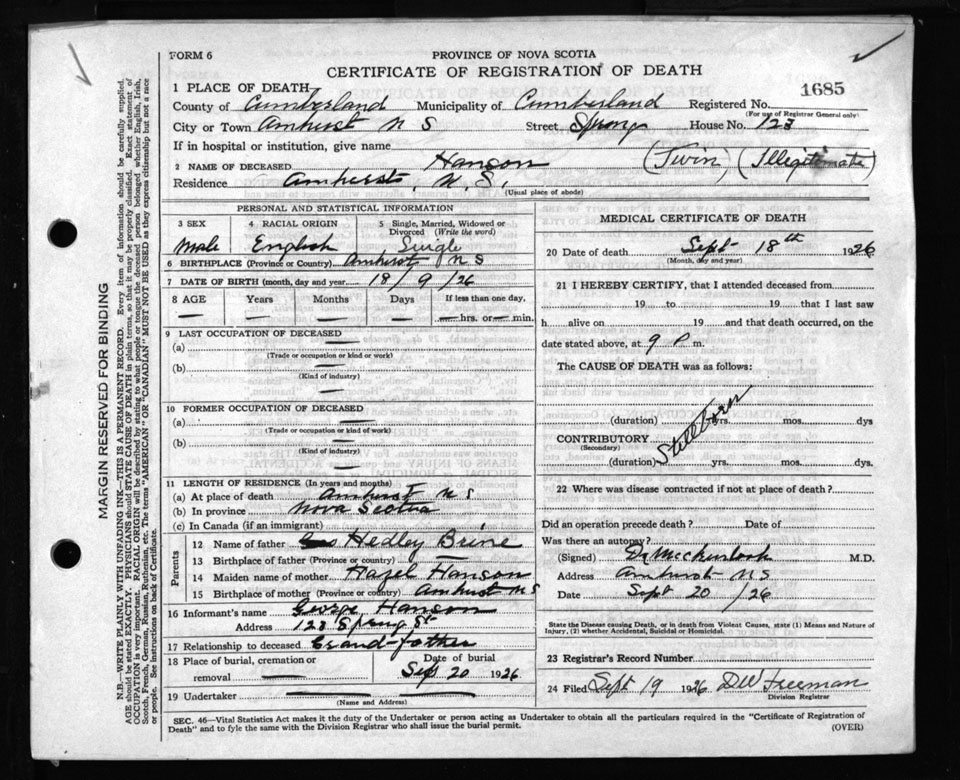 FORM 6
PROVINCE OF NOVA SCOTIA
CERTIFICATE OF REGISTRATION OF DEATH
1685
1 PLACE OF DEATH
County of Cumberland Municipality of Cumberland Registered No.
(For use of Registrar General only)
City or Town Amherst N S Street Spring House No. 123
If in hospital or institution, give name
2 NAME OF DECEASED Hanson (Twin) (Illegitimate)
Residence Amherst, N.S.
(Usual place of abode)
PERSONAL AND STATISTICAL INFORMATION
3 SEX 4 RACIAL ORIGIN 5 Single, Married, Widowed or Divorced (Write the word)
Male English Single
6 BIRTHPLACE (Province or Country) Amherst N S
7 DATE OF BIRTH (month, day and year) 18/9/26
8 AGE Years Months Days If less than one day,
— — — — —hrs. or — min.
9 LAST OCCUPATION OF DECEASED
(a) —
(Trade or occupation or kind or work)
(b) —
(Kind of industry)
—
10 FORMER OCCUPATION OF DECEASED
(a) —
(Trade or occupation or kind of work)
(b) —
(Kind of industry)
—
11 LENGTH OF RESIDENCE (In years and months)
(a) At place of death Amherst N S
(b) In province Nova Scotia
(c) In Canada (if an immigrant)
Parents
12 Name of father Hedley Brine
13 Birthplace of father (Province or country) —
14 Maiden name of mother Hazel Hanson
15 Birthplace of mother (Province or country) Amherst N S
16 Informant's name George Hanson
Address 123 Spring St
17 Relationship to deceased Grand-father
18 Place of burial, cremation or Date of burial
removal — Sep 20 1926
19 Undertaker
(Name and Address)
MEDICAL CERTIFICATE OF DEATH
20 Date of death Sept 18th 1926
(Month, day and year)
21 I HEREBY CERTIFY, that I attended deceased from
19 to 19 that I last saw
h alive on 19 and that death occurred, on
date stated above, at 9 P m.
The CAUSE OF DEATH was as follows:
Stillborn
(duration) yrs. mos. dys
CONTRIBUTORY
(Secondary)
(duration) yrs. mos. dys.
22 Where was disease contracted if not at place of death?
Did an operation precede death? Date of
Was there an autopsy?
(Signed) Dr M.D.
Address Amherst N S
Date Sept 20/26
State the Disease causing Death, or in death from Violent Causes, state (1) Means and Nature of
Injury, (2) whether Accidental, Suicidal or Homicidal.
23 Registrar's Record Number
24 Filed Sept 19 1926 DW Freeman
Division Registrar
SEC. 46—Vital Statistics Act makes it the duty of the Undertaker or person acting as Undertaker to obtain all the particulars required in the "Certificate of Registration of
Death" and to fyle the same with the Division Registrar who shall issue the burial permit.
(OVER)
MARGIN RESERVED FOR BINDING
N.B.—WRITE PLAINLY WITH UNFADING INK—THIS IS A PERMANENT RECORD. Every item of information should be carefully supplied.
AGE should be stated EXACTLY. PHYSICIANS should STATE CAUSE OF DEATH in plain terms, so that it may be properly classified. Exact statement of
OCCUPATION is very important. RACIAL ORIGIN will be described by stating to what people or tongue the deceased person belonged whether English, Irish,
Scotch, French, German, Russian, Ruthenian, etc. The terms "AMERICAN" OR "CANADIAN" MUST NOT BE USED as they express citizenship but not a race
or people. See instructions on back of Certificate.